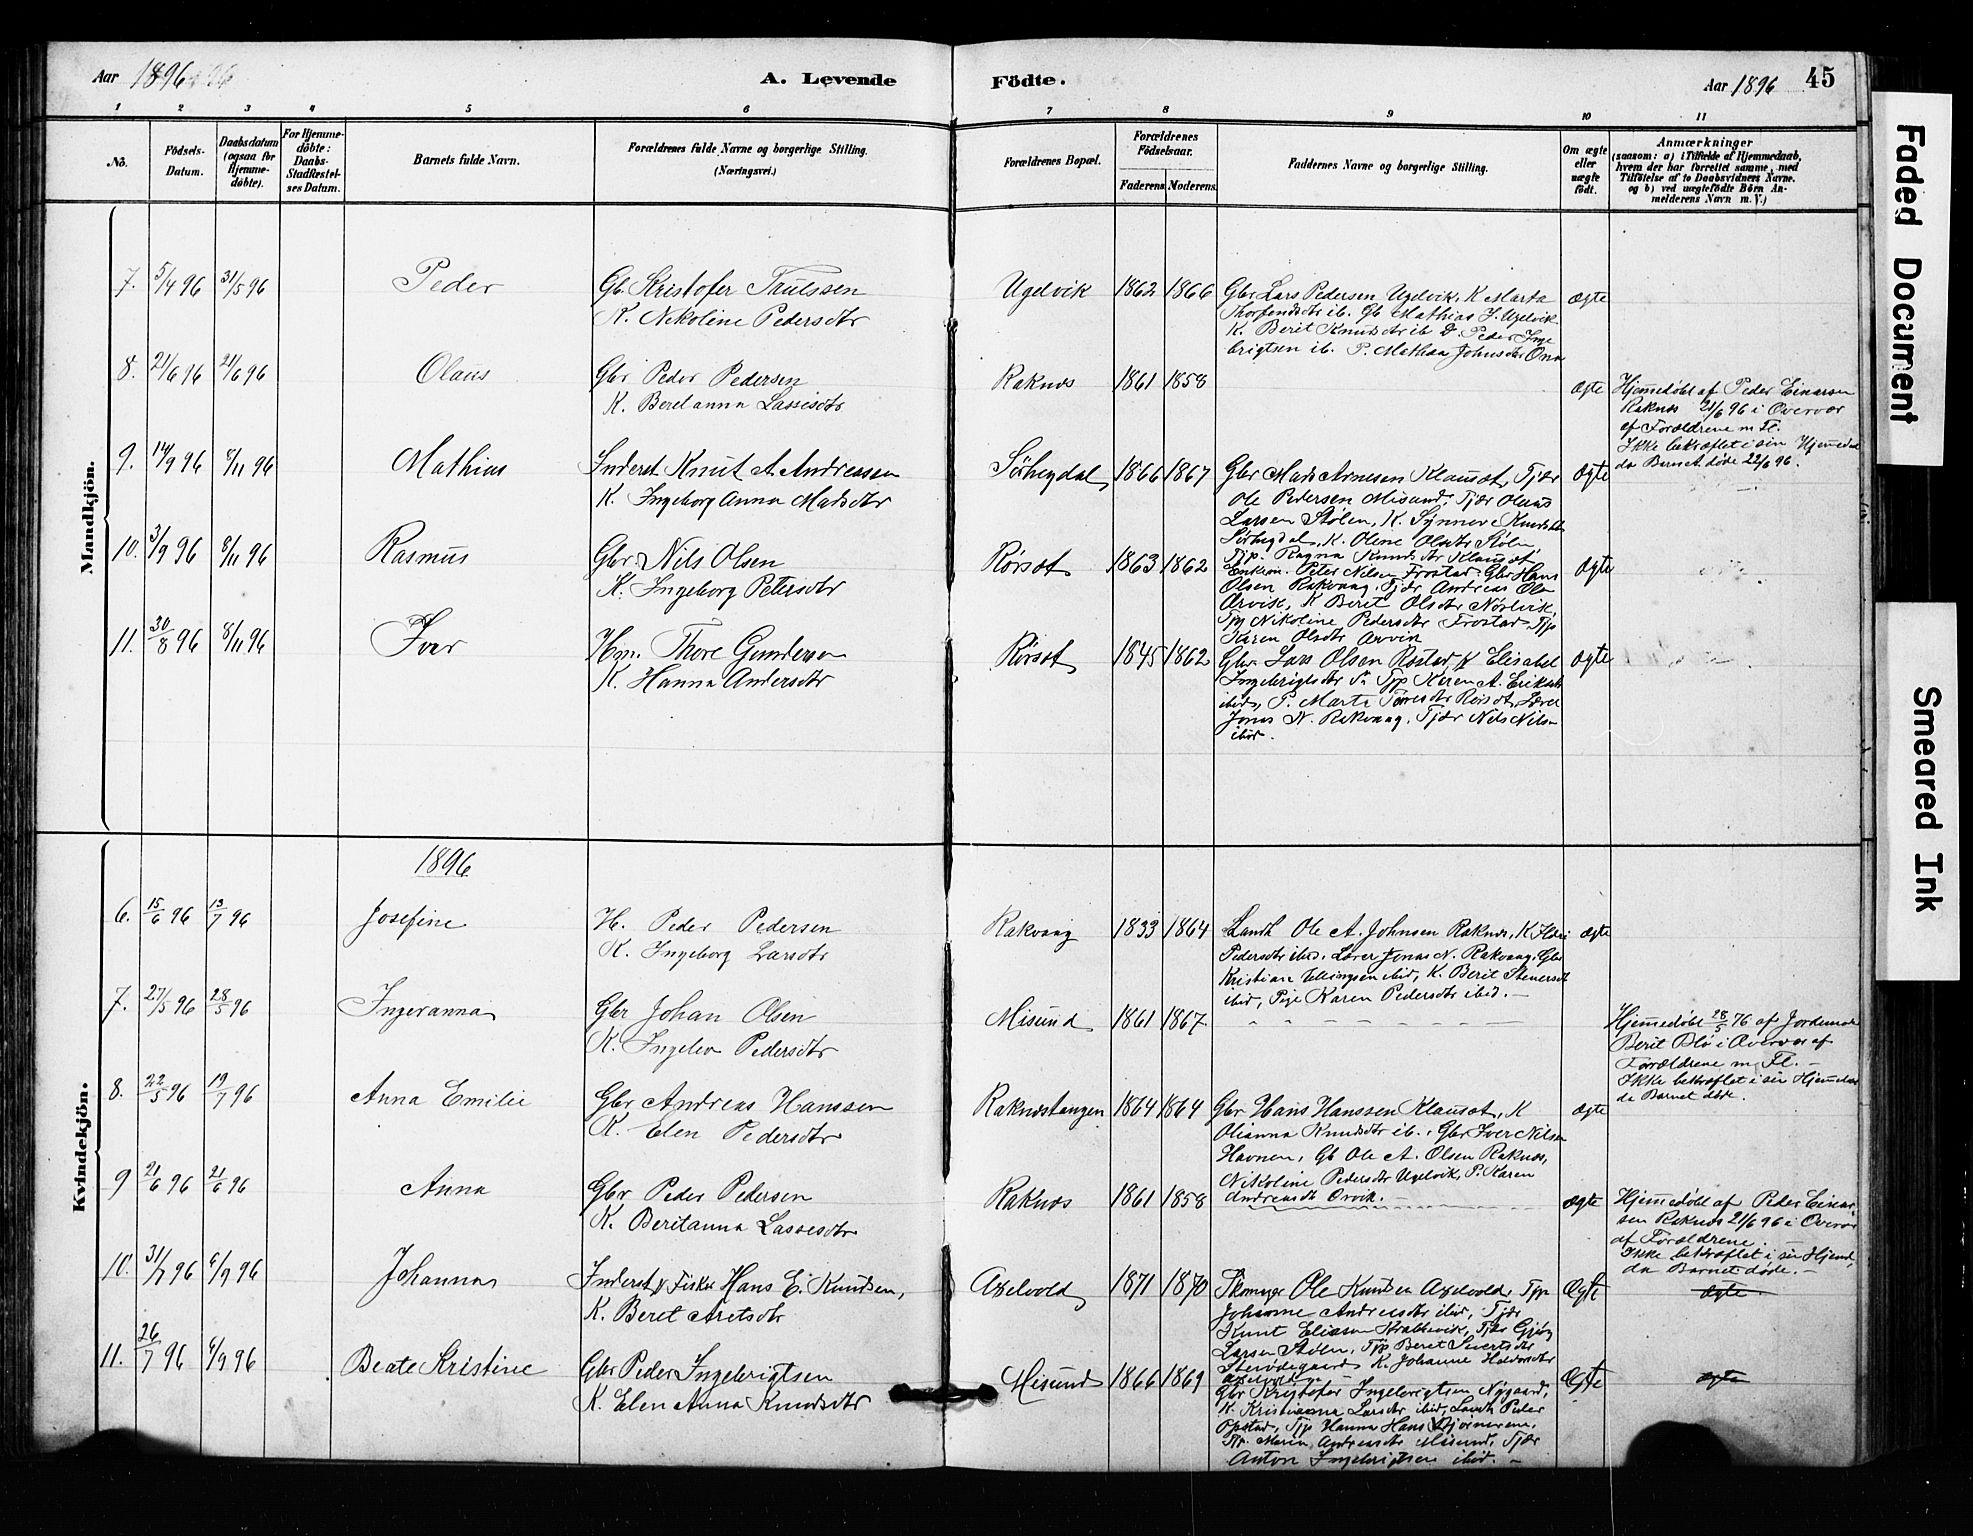 Aar 1896
A. Levende Födte.
Aar 1896 45
1 2 3 4 5 6 7 8 9 10 11
No.
Födsels-Datum.
Daabsdatum (ogsaa for Hjemme-döbte).
For Hjemme-döbte: Daabs-Stadfæstel-ses Datum.
Barnets fulde Navn.
Forældrenes fulde Navne og borgerlige Stilling. (Næringsvei.)
Forældrenes Bopæl.
Forældrenes Födselsaar.
Faderens. Moderens.
Faddernes Navne og borgerlige Stilling.
Om ægte eller uægte födt.
Anmærkninger
(saasom: a) i Tilfælde af Hjemmedaab,
hvem der har forrettet samme, med
Tilföielse af to Daabsvidners Navne.
og b) ved uægtefödte Börn An-
melderens Navn m. V.)
Mandkjön.
7. 5/4 96 31/5 96 Peder
Gb. Kristofer
K. Nikoline Pedersdtr
Ugelvik 1862 1866
Gbr Lars Pedersen Ugelvik, K Marta
ib. Gb Mathias J. Ugelvik
K. Berit Knudsdtr ib P. Peder Inge
brigtsen ib. P. Mathea Johnsdtr
ægte
8. 21/6 96 21/6 96 Olaus
Gbr Peder Pedersen
K. Beret anna Lassesdtr
Raknes 1861 1858
Ægte
Hjemmedöbt af Peder Einarsen
Raknes 21/6 96 i Overvær
af Forældrene m Fl.
Ikke bekræftet i sin Hjemmed
da Barnet döde 22/6 96.
9. 14/9 96 8/11 96 Mathias
Inderst Knut A. Andreassen
K. Ingeborg Anna Madsdtr
1866 1867
Gbr Mads Arnesen Klauset, Tjær
Ole Pedersen Misund, Tjær Olaus
Larsen Stölen, K. Synnöve Knudsdtr
K. Olene Olsdtr Stölen
Tjp. Ragna Knudsdtr Klauset
Ægte
10. 3/9 96 8/11 96 Rasmus
Gbr. Nils Olsen
K. Ingeborg Petersdtr
Rörset 1863 1862
Peter Nilsen Frostad. Gbr Hans
Olsen Rakvaag, Tjær Andreas Ols
Orvik, K Beret Olsdtr
Tjp Nikoline Pedersdtr Frostad, Tjp
Karen Olsdtr
Ægte
11. 30/8 96 8/11 96 Iver
Hm. Thore Gundersen
K. Hanna Andersdtr
Rörset 1845 1862
Gbr. Lars Olsen Rostad, K Elisabet
Ingebrigtsdtr Tjp Karen A. Eriksdtr
ibid, P. Marta Toresdtr Rörset, Lærer
Jonas N. Rakvaag. Tjær Nils Nilsen
ibid.
Ægte
Kvindekjön.
1896
6. 15/6 96 13/7 96 Josefine
H. Peder Pedersen
K. Ingeborg Larsdtr
Rakvaag 1833 1864
Landh Ole A. Johnsen Raknes, K
Pedersdtr ibid. Lærer Jonas N. Rakvaag, Gbr
Kristian Ellingsen ibid, K. Berit
ibid, Pige Karen Pedersdtr ibid. –
Ægte
7. 27/5 96 28/5 96 Ingeranna
Gbr Johan Olsen
K. Ingebor Pedersdtr
Misund 1861 1867
Hjemmedöbt 28/5 76 af Jordemor
Berit Blö i Overvær af
Forældrene m Fl. –
Ikke bekræftet i sin Hjemmed
da Barnet döde.
8. 22/5 96 19/7 96 Anna Emilie
Gbr Andreas Hanssen
K. Elen Pedersdtr
Raknestangen 1864 1864
Gbr Hans Hanssen Klauset, K
Olianna Knudsdtr ib., Gbr Iver Nilsen
Havnen, Gb Ole A. Olsen Raknes,
Nikoline Pedersdtr Ugelvik, P. Karen
Andreasdt Orvik. –
ægte
9 21/6 96 21/6 96 Anna
Gbr Peder Pedersen
K. Beritanna Lassesdtr
Raknes 1861 1858
ægte
Hjemmedöbt af Peder Einar-
sen Raknes 21/6 96 i Overvær
af Forældrene. –
Ikke bekræftet i sin Hjemmd,
da Barnet döde. –
10. 31/7 96 6/9 96 Johanna
Inderst & Fisker Hans E. Knudsen,
K. Beret Aretsdtr
Axelvold 1871 1870
Skomager Ole Knudsen Axelvold, Tjp
Johanne Andreasdtr ibid, Tjær
Knut Eliasen Tjær Gjör
Larsen Stölen, Tjp Beret Sivertsdtr
K. Johanne Haldorsdtr
Axelvold
Ægte
ægte
11. 26/7 96 6/9 96 Beate Kristine
Gbr Peder Ingebrigtsen
K. Elen Anna Knudsdtr
Misund 1866 1869
Gbr Kristofer Ingebrigtsen Nygaard,
K. Kristianna Larsdtr ibid, Landh Peder
Opstad, Tjp Hanna Hansd Björnerem,
Tjp. Maria Andreasdtr Misund, Tjær
Anton Ingebrigtsen ibid. –
Ægte
ægte
Faded Document
Smeared Ink